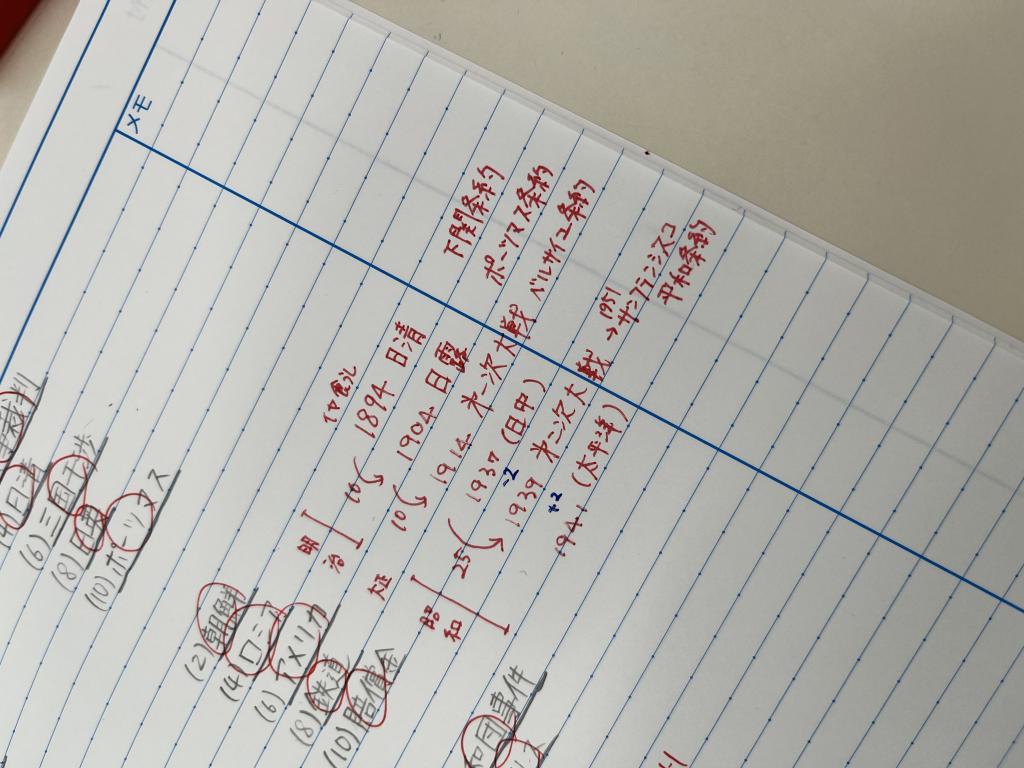 メモ
裁判
日清
(6) 三国干渉
(8) 日露
(10) ポーツマス
(2) 朝鮮
(4) ロシア
(6) アメリカ
(8) 鉄道
(10) 賠償金
和団事件
明治
10
1894 日清 下関条約
10
1904 日露 ポーツマス条約
大正
1914 第一次大戦 ベルサイユ条約
昭和
25
1937 (日中)
-2
1939 第二次大戦 → 1951 サンフランシスコ平和条約
+2
1941 (太平洋)